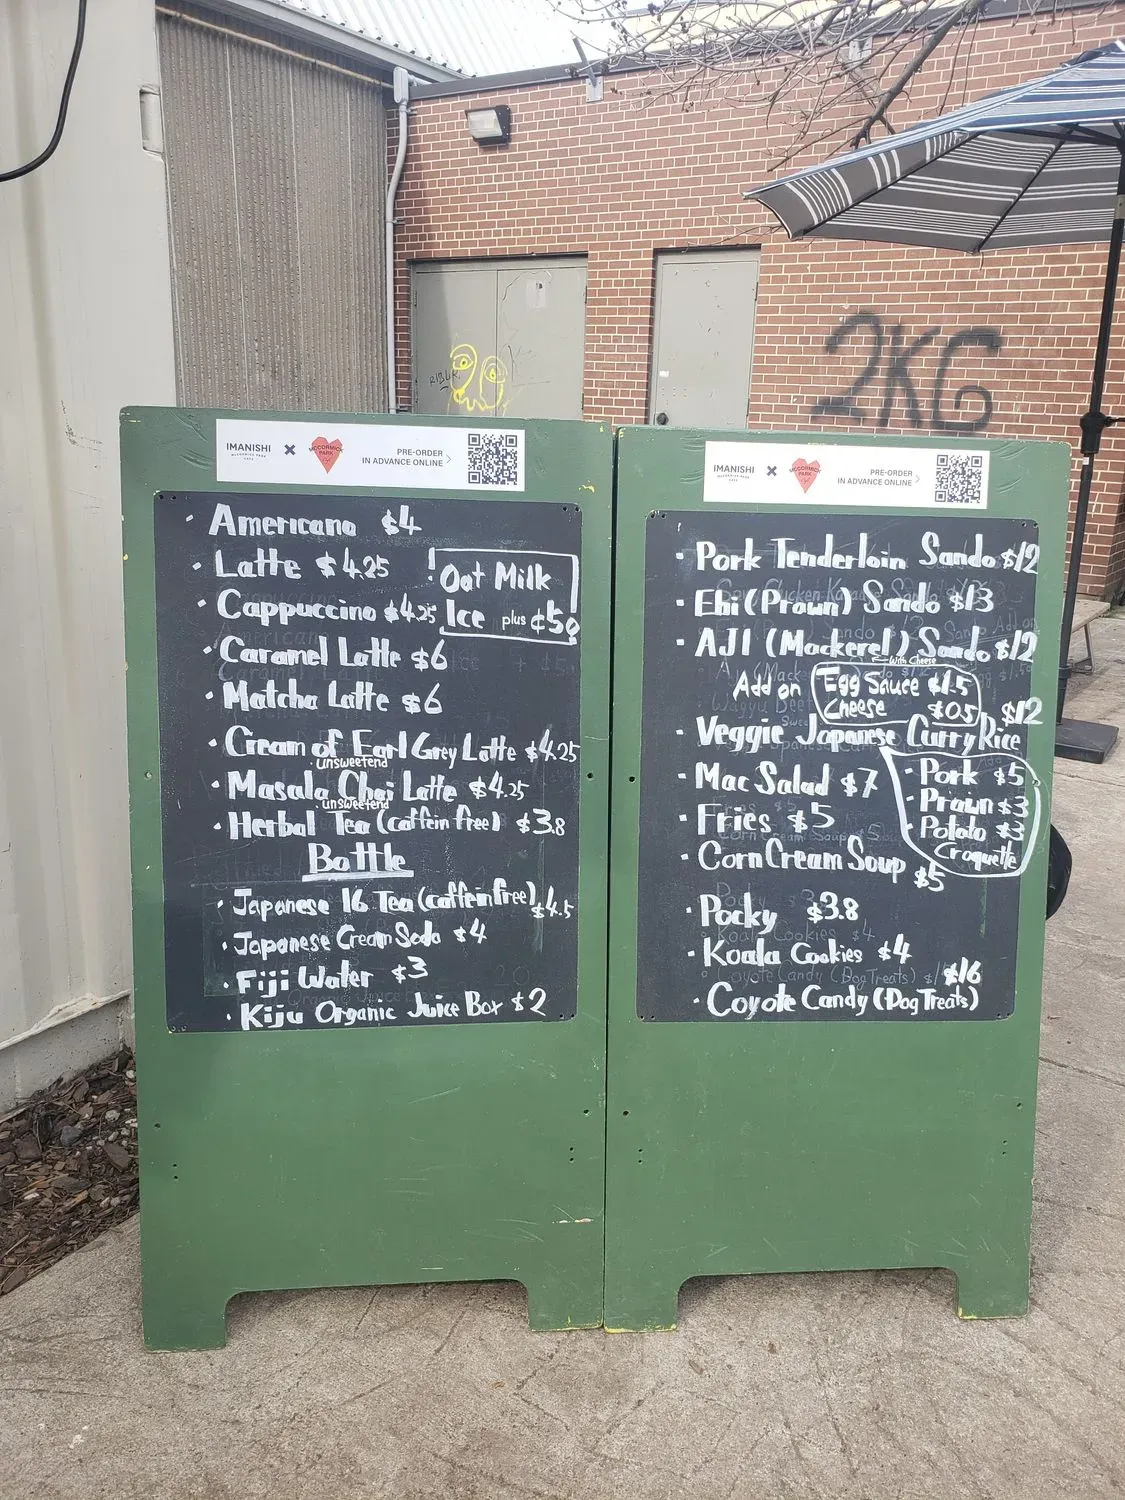 2KG
IMANISHI
MCCORMICK PARK
CAFE
MCCORMICK
PARK
PRE-ORDER
IN ADVANCE ONLINE
• Americano $4
• Latte $4.25
• Cappuccino $4.25
! Oat Milk
Ice plus ¢50
• Caramel Latte $6
• Matcha Latte $6
• Cream of Earl Grey Latte $4.25
• unsweetend
• Masala Chai Latte $4.25
• unsweetend
• Herbal Tea (caffein free) $3.8
Bottle
• Japanese 16 Tea (caffein free) $4.5
• Japanese Cream Soda $4
• Fiji Water $3
• Kiju Organic Juice Box $2
IMANISHI
MCCORMICK PARK
CAFE
MCCORMICK
PARK
PRE-ORDER
IN ADVANCE ONLINE
• Pork Tenderloin Sando $12
• Ebi (Prawn) Sando $13
• AJI (Mackerel) Sando $12
with Cheese
Add on Egg Sauce $1.5
Cheese $0.5
$12
• Veggie Japanese Curry Rice
• Pork $5
• Prawn $3
• Potato $3
Croquette
• Mac Salad $7
• Fries $5
• Corn Cream Soup $5
• Pocky $3.8
• Koala Cookies $4
$16
• Coyote Candy (Dog Treats)